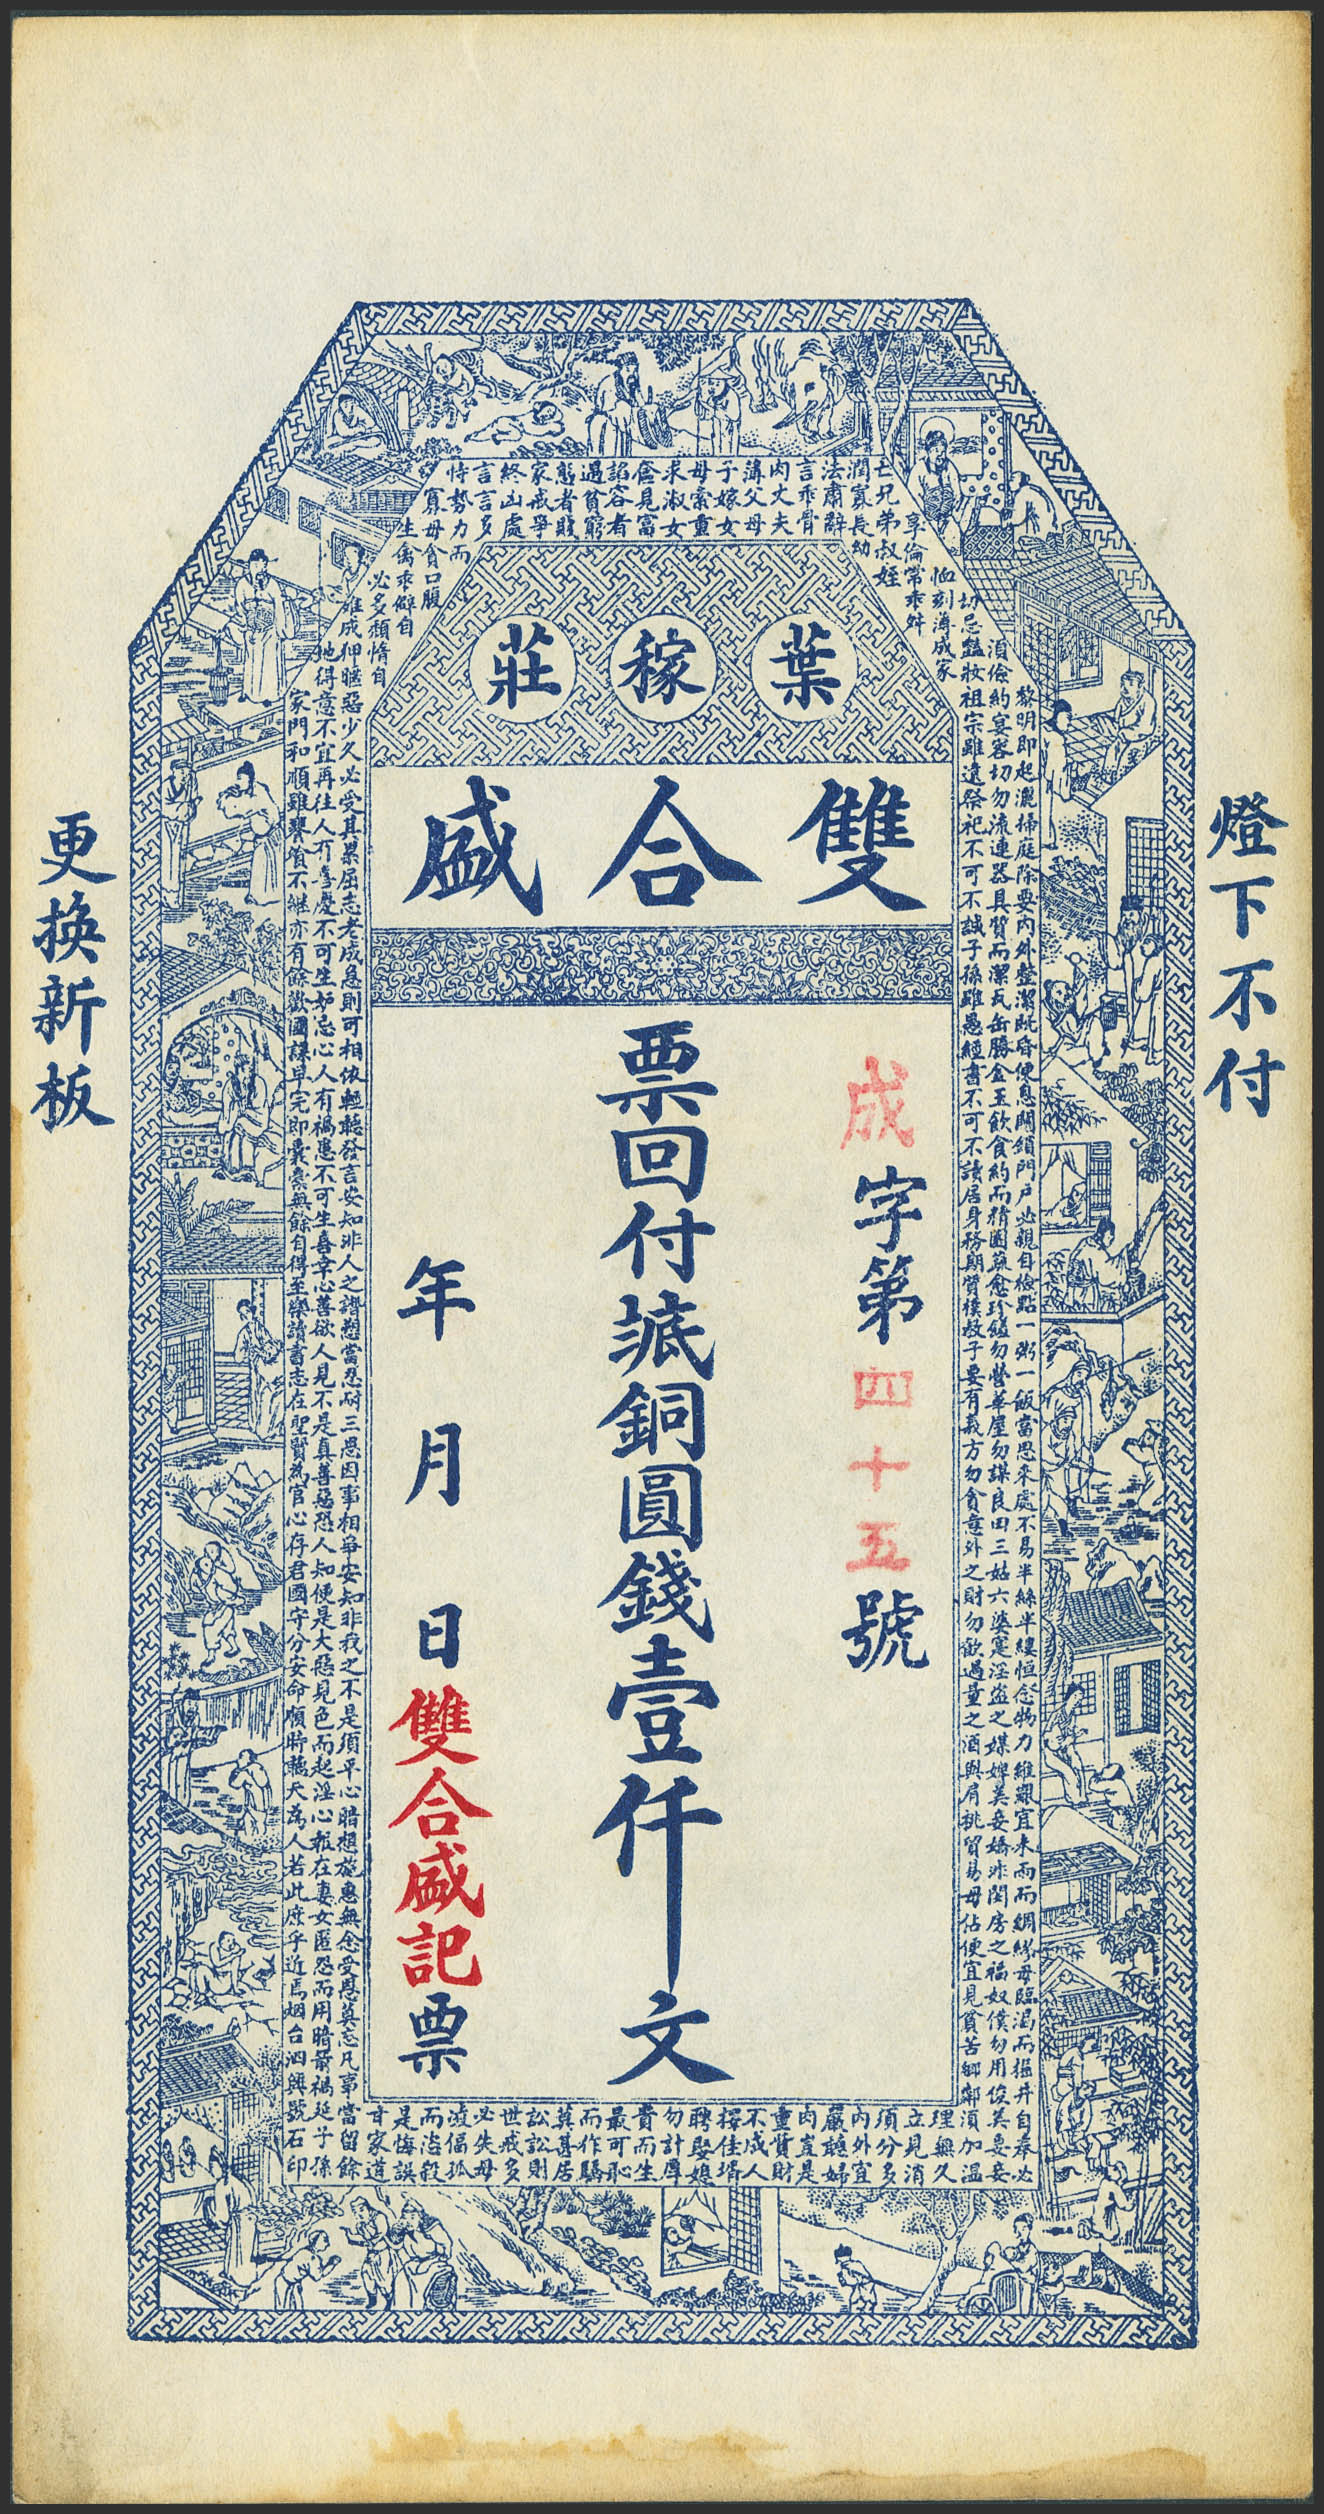 燈下不付
葉稼莊
雙合盛
成字第四十五號
票回付銅圓錢壹仟文
年月日雙合盛記票
更換新板
黎明即起灑掃庭除要內外整潔既昏便息關鎖門戶必親自檢點一粥一飯當思來處不易半絲半縷恒念物力維艱宜未雨而綢繆毋臨渴而掘井自奉必
須儉約宴客切勿流連器具質而潔瓦缶勝金玉飲食約而精園蔬愈珍饈勿營華屋勿謀良田三姑六婆寔淫盜之媒婢美妾嬌非閨房之福奴僕勿用俊美妻妾
切忌豔妝祖宗雖遠祭祀不可不誠子孫雖愚經書不可不讀居身務期質樸教子要有義方勿貪意外之財勿飲過量之酒與肩挑貿易毋佔便宜見貧苦鄉鄰須加溫
恤刻薄成家
理無久
享倫常乖舛
立見消
亡兄弟叔姪
須分多
潤寡長幼
內外宜
法肅辭
嚴聽婦
言乖骨
肉豈是
肉丈夫
重貲財
薄父母
不成人
子嫁女
擇佳壻
毋索重
聘娶媳
求淑女
勿計厚
奩見富
貴而生
諂容者
最可恥
遇貧窮
而作驕
態者賤
莫甚居
家戒爭
訟訟則
終凶處
世戒多
言言多
必失毋
恃勢力而
凌偪孤
寡毋貪口腹
而恣殺
生禽乖僻自
是悔誤
必多頹惰自
甘家道
難成狎暱惡少久必受其累屈志老成急則可相依輕聽發言安知非人之譖愬當忍耐三思因事相爭安知非我之不是須平心暗想施惠無念受恩莫忘凡事當留餘
地得意不宜再往人有喜慶不可生妒忌心人有禍患不可生喜幸心善欲人見不是真善惡恐人知便是大惡見色而起淫心報在妻女匿怨而用暗箭禍延子孫
家門和順雖饔飧不繼亦有餘歡國課早完即囊橐無餘自得至樂讀書志在聖賢為官心存君國守分安命順時聽天為人若此庶乎近焉烟台泗興號石印